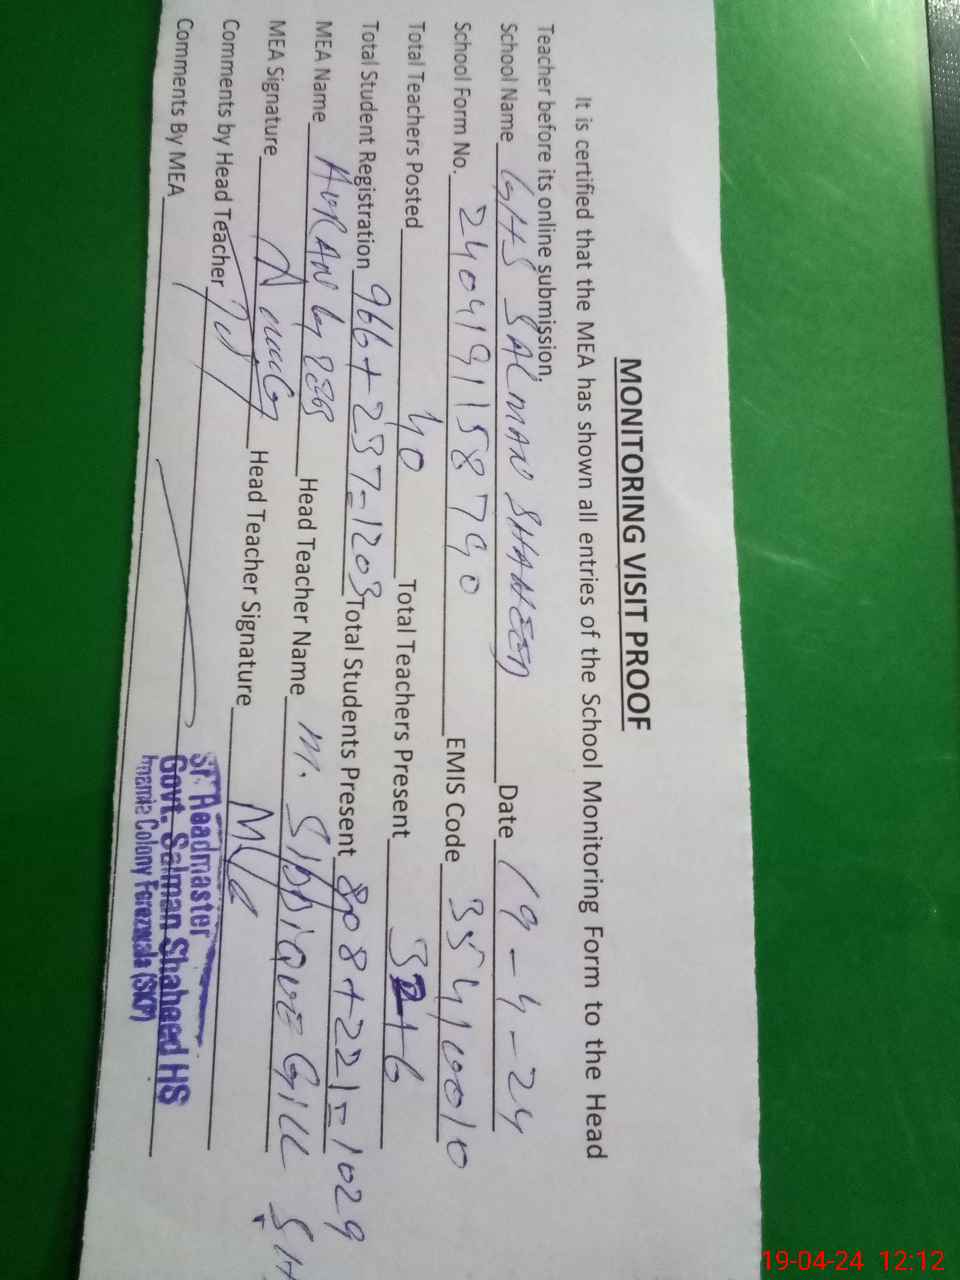 MONITORING VISIT PROOF
It is certified that the MEA has shown all entries of the School Monitoring Form to the Head
Teacher before its online submission.
School Name GHS SALMAN SHAHEED Date 19-4-24
School Form No. 2404191158790 EMIS Code 35410010
Total Teachers Posted 40 Total Teachers Present 32+6
Total Student Registration 966+237=1203 Total Students Present 808+221=1029
MEA Name Head Teacher Name M. SiDDiQUE GiLL
MEA Signature Head Teacher Signature
Comments by Head Teacher
Comments By MEA
Sr. Headmaster
Govt. Salman Shaheed HS
Colony Ferozwala (SKP)
19-04-24 12:12